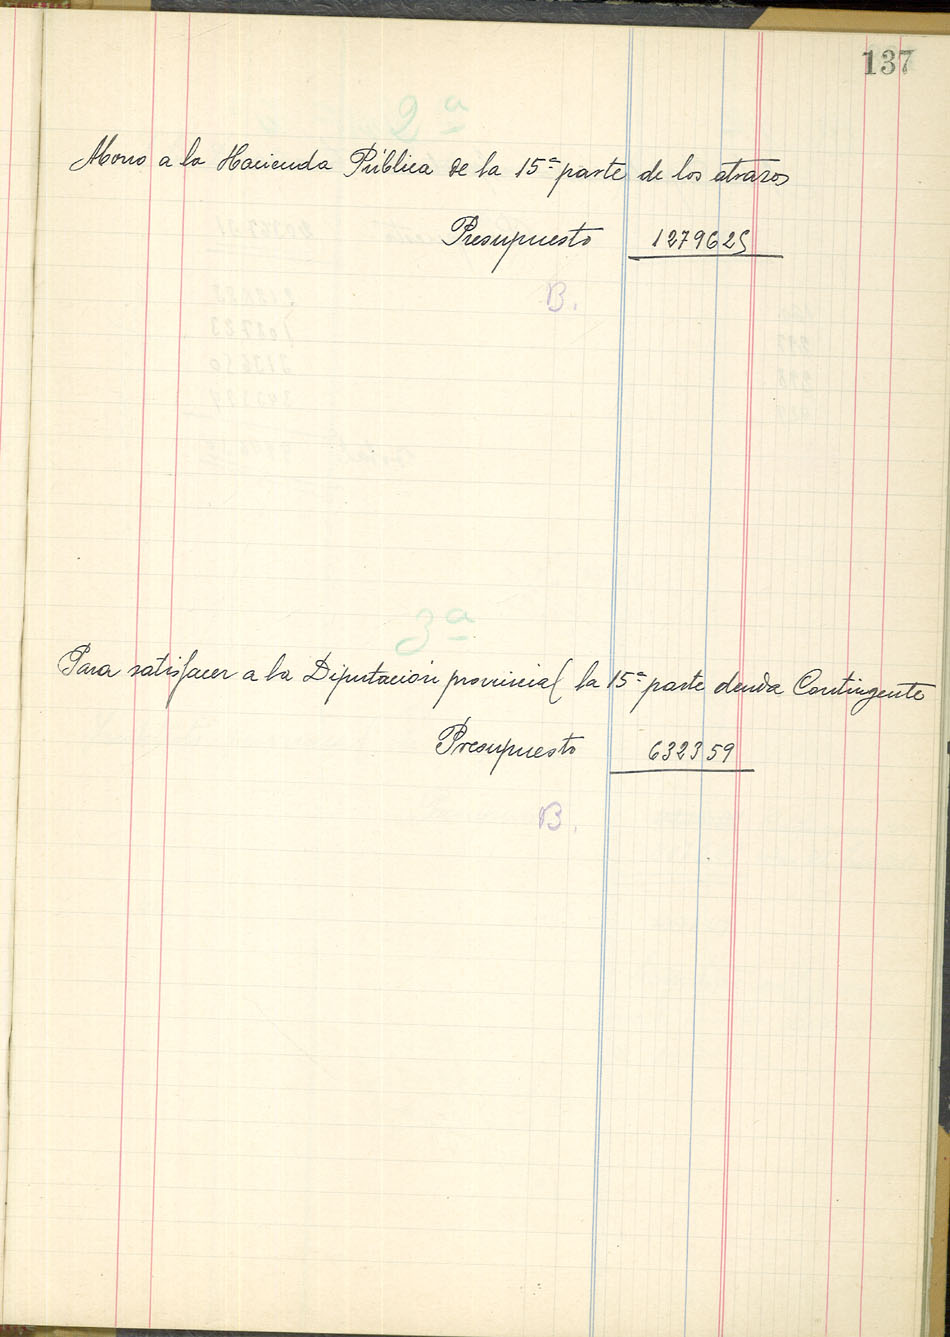 137
2ª
Abono a la Hacienda Pública de la 15ª parte de los atrasos
Presupuesto 1279625
B.
3ª
Para satisfacer a la Diputación provincial la 15ª parte deuda Contingente
Presupuesto 632359
B.